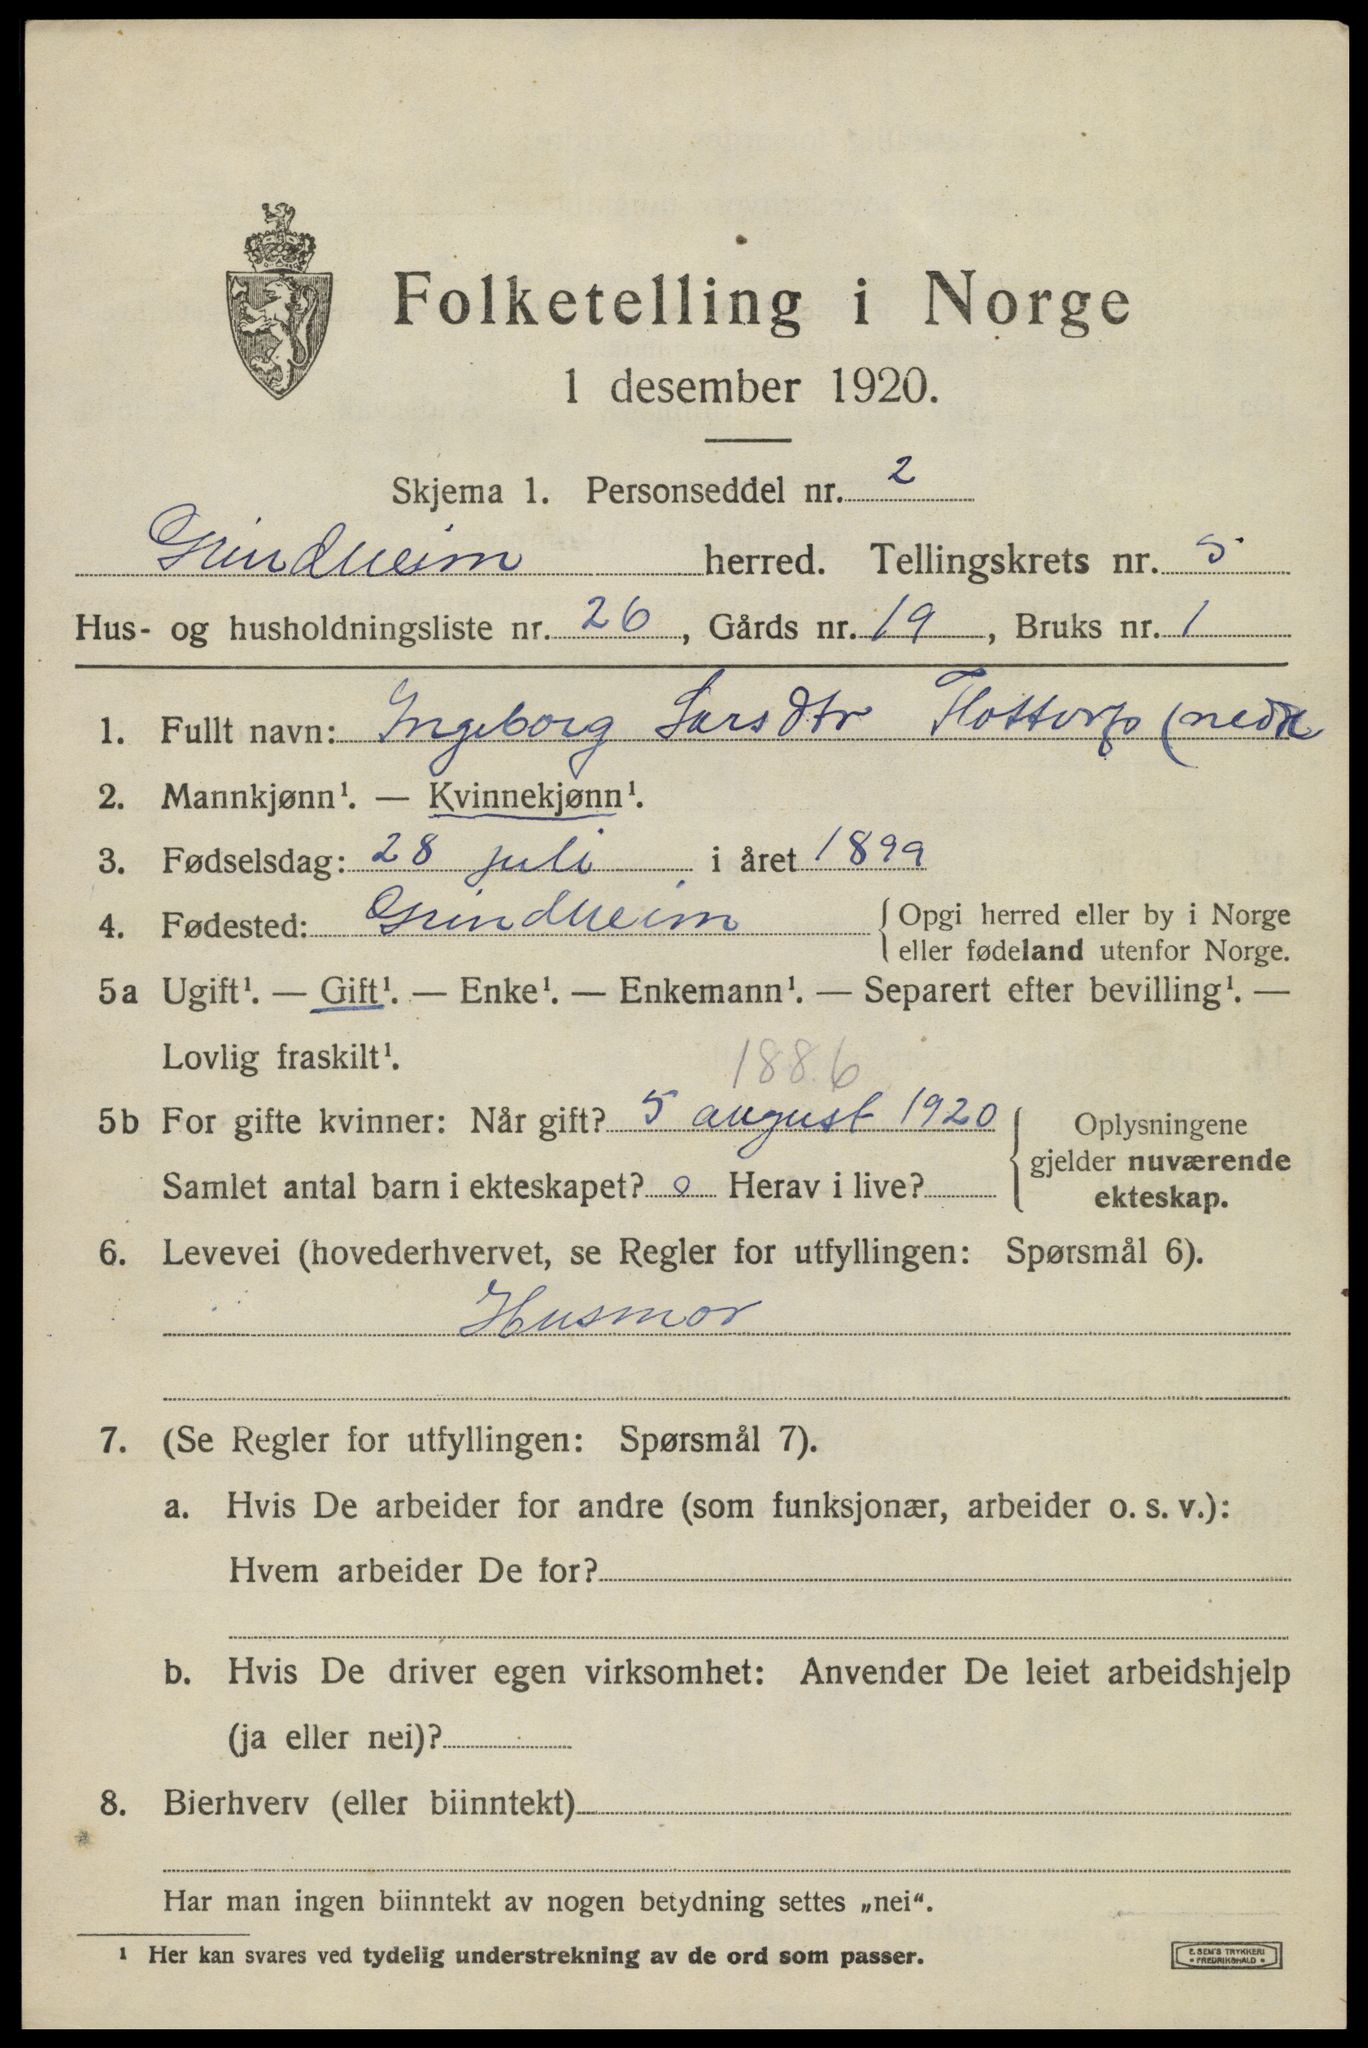 Folketelling i Norge
1 desember 1920.
Skjema 1. Personseddel nr. 2
Grindheim herred. Tellingskrets nr. 5
Hus- og husholdningsliste nr. 26, Gårds nr. 19, Bruks nr. 1
1. Fullt navn: Ingeborg Larsdtr Flottorp (nedre
2. Mannkjønn¹. — Kvinnekjønn¹.
3. Fødselsdag: 28 juli i året 1899
4. Fødested: Grindheim { Opgi herred eller by i Norge
eller fødeland utenfor Norge.
5a Ugift¹. — Gift¹. — Enke¹. — Enkemann¹. — Separert efter bevilling¹. —
Lovlig fraskilt¹.
1886
5b For gifte kvinner: Når gift? 5 august 1920
Samlet antal barn i ekteskapet? 0 Herav i live?
{ Oplysningene
gjelder nuværende
ekteskap.
6. Levevei (hovederhvervet, se Regler for utfyllingen: Spørsmål 6).
Husmor
7. (Se Regler for utfyllingen: Spørsmål 7).
a. Hvis De arbeider for andre (som funksjonær, arbeider o. s. v.):
Hvem arbeider De for?
b. Hvis De driver egen virksomhet: Anvender De leiet arbeidshjelp
(ja eller nei)?
8. Bierhverv (eller biinntekt)
Har man ingen biinntekt av nogen betydning settes „nei“.
¹ Her kan svares ved tydelig understrekning av de ord som passer.
E. SEM'S TRYKKERI
• FREDRIKSHALD •